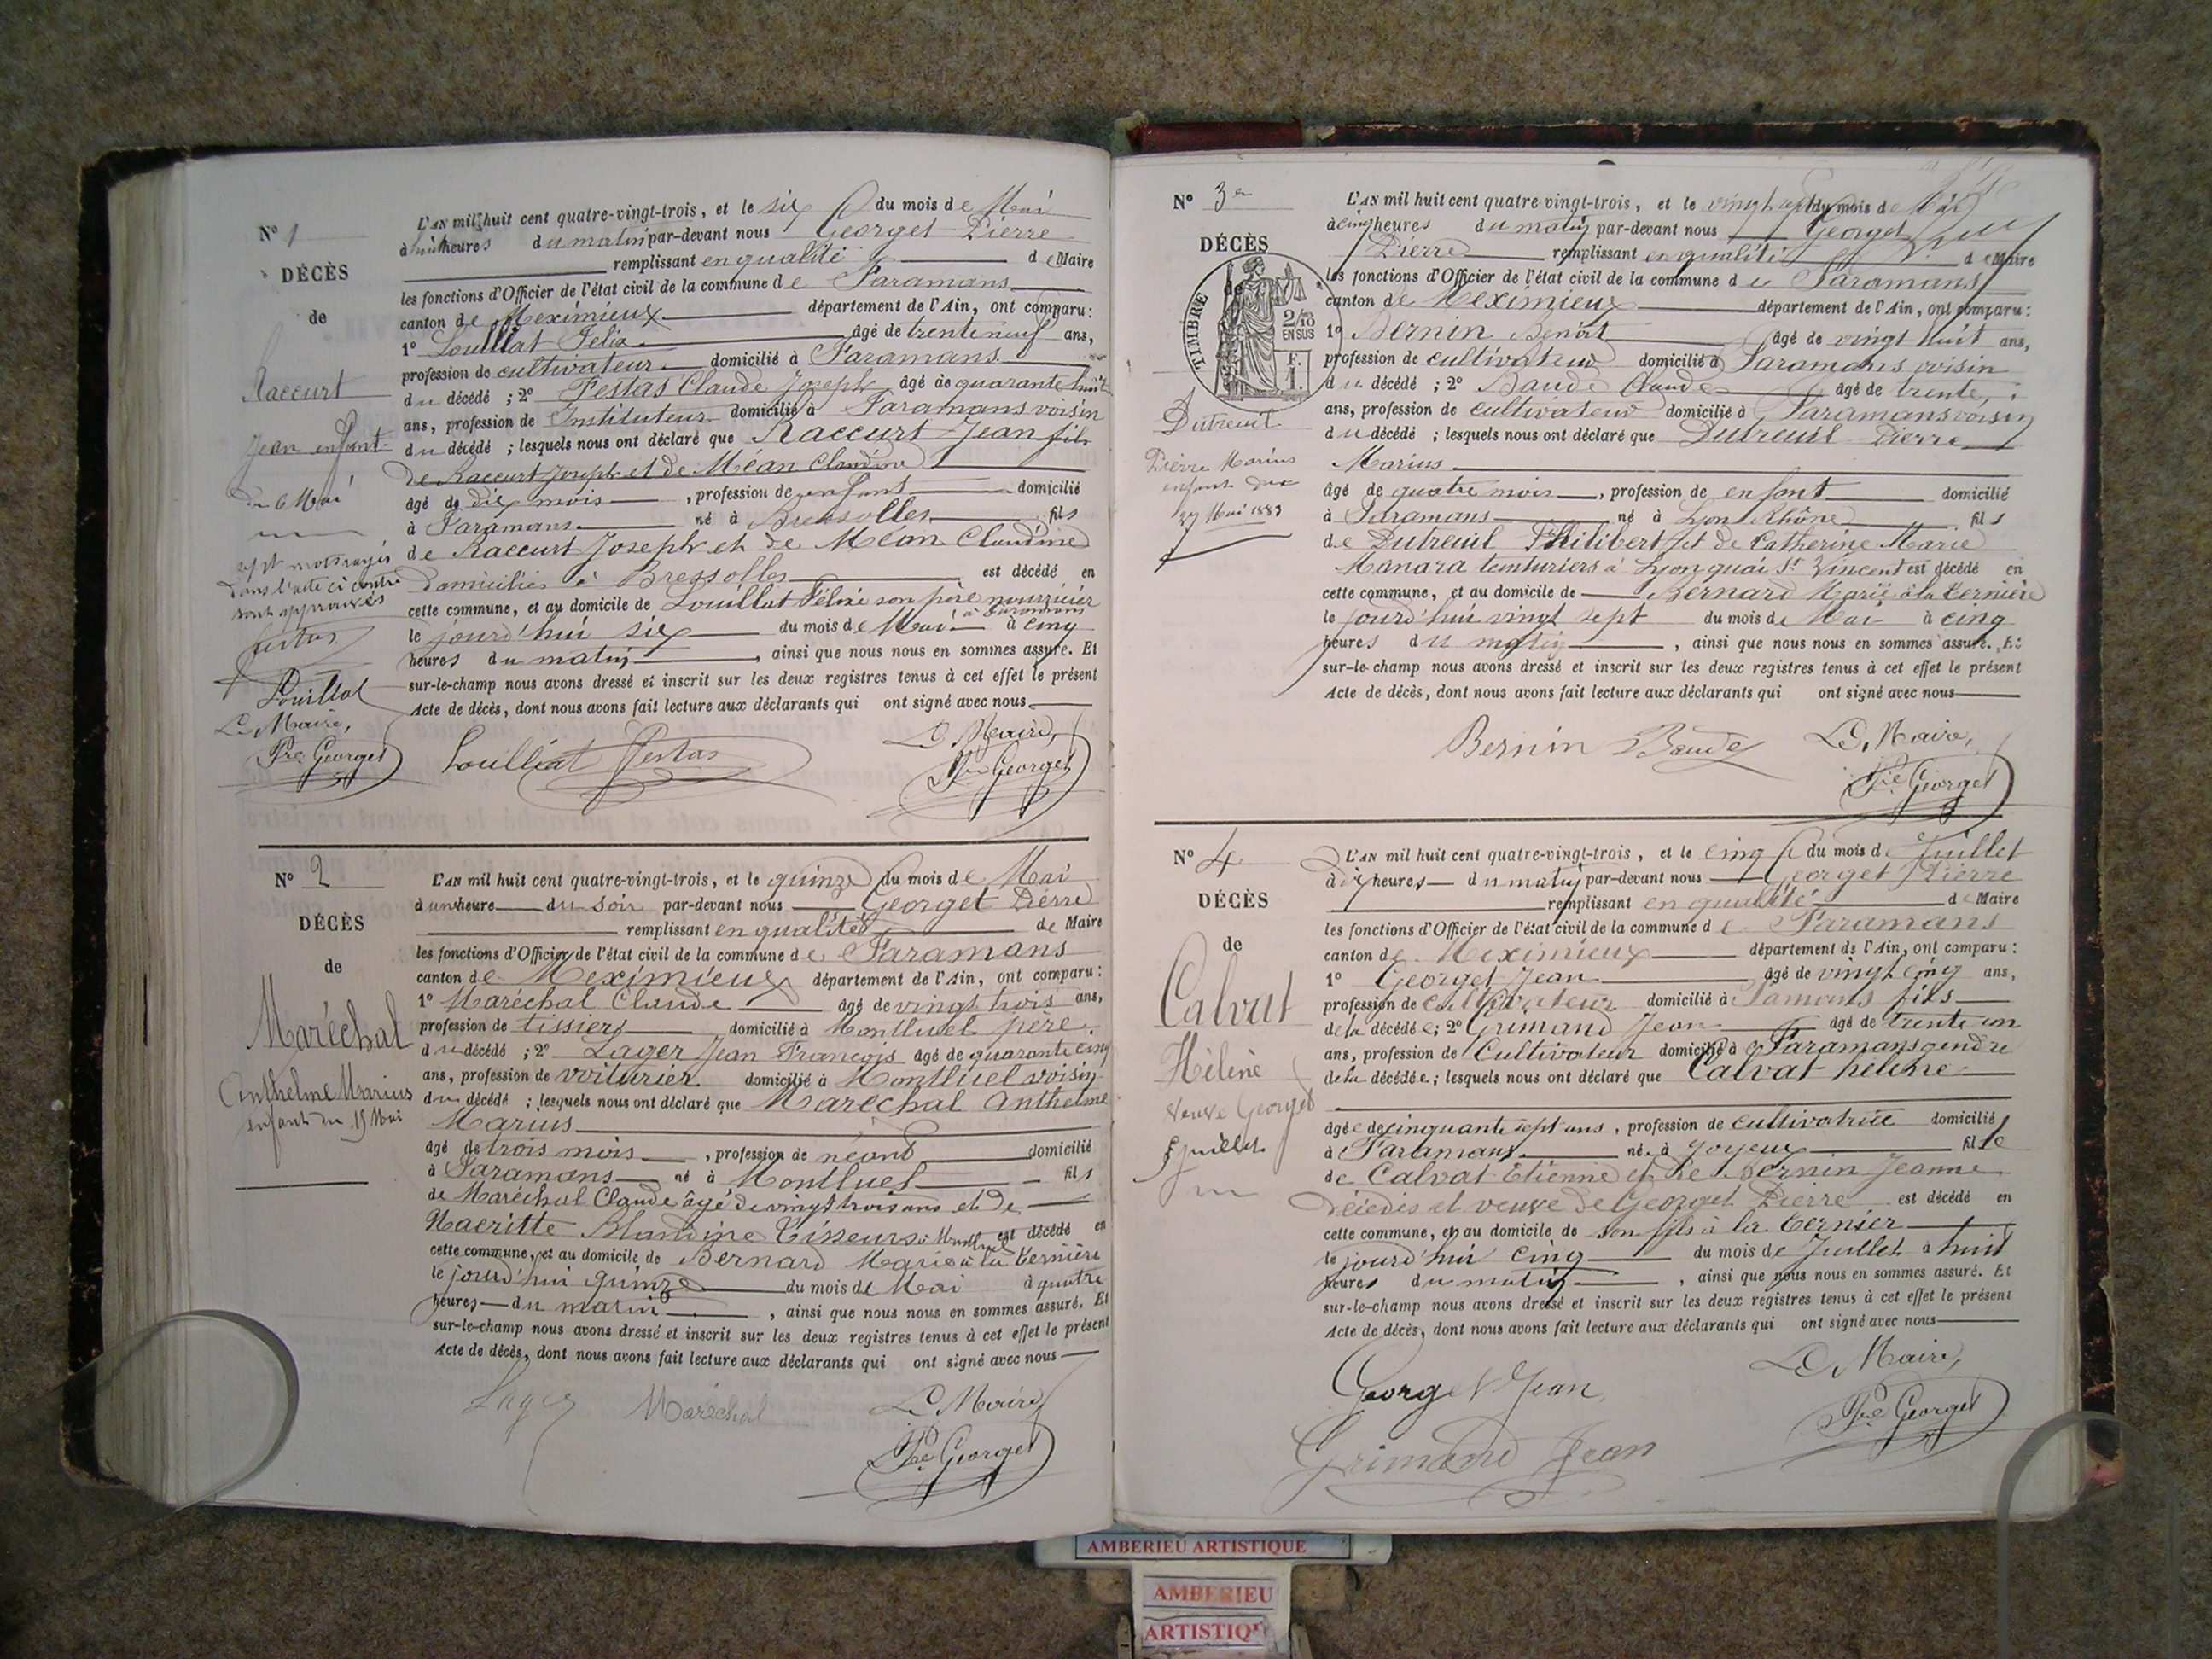 N° 1
DÉCÈS
de
Raccurt
Jean enfant
du 6 Mai
sept mots rayés
dans l'acte ci contre
sont approuvés
Festas
Louillat
Le Maire,
Pre Georget
L'AN mil huit cent quatre-vingt-trois, et le six du mois de Mai
à huit heures du matin par-devant nous Georget Pierre
remplissant en qualité de Maire
les fonctions d'Officier de l'état civil de la commune de Faramans
canton de Meximieux département de l'Ain, ont comparu:
1° Louillat Felix âgé de trente neuf ans,
profession de cultivateur domicilié à Faramans
du décédé ; 2° Festas Claude Joseph âgé de quarante huit
ans, profession de Instituteur domicilié à Faramans voisin
du décédé ; lesquels nous ont déclaré que Raccurt Jean fils
de Raccurt Joseph et de Méan Claudine
âgé de dix mois , profession de enfant domicilié
à Faramans né à Bressolles fils
de Raccurt Joseph et de Méan Claudine
domiciliés à Bressolles est décédé en
cette commune, et au domicile de Louillat Félix son père nourricier
à Faramans
le jourd'hui six du mois de Mai à cinq
heures du matin , ainsi que nous nous en sommes assuré. Et
sur-le-champ nous avons dressé et inscrit sur les deux registres tenus à cet effet le présent
Acte de décès, dont nous avons fait lecture aux déclarants qui ont signé avec nous
Louilliat Festas Le Maire,
Pre Georget
N° 2
DÉCÈS
de
Maréchal
Anthelme Marius
enfant du 15 Mai
L'AN mil huit cent quatre-vingt-trois, et le quinze du mois de Mai
à un heure du soir par-devant nous Georget Pierre
remplissant en qualité de Maire
les fonctions d'Officier de l'état civil de la commune de Faramans
canton de Meximieux département de l'Ain, ont comparu:
1° Maréchal Claude âgé de vingt trois ans,
profession de tissiers domicilié à Montluel père
du décédé ; 2° Lager Jean François âgé de quarante cinq
ans, profession de voiturier domicilié à Montluel voisin
du décédé ; lesquels nous ont déclaré que Maréchal Anthelme
Marius
âgé de trois mois , profession de néant domicilié
à Faramans né à Montluel fils
de Maréchal Claude âgé de vingt trois ans et de
Blandine Tisseurs à Montluel est décédé en
cette commune, et au domicile de Bernard Marie à la Bernière
le jourd'hui quinze du mois de Mai à quatre
heures du matin , ainsi que nous nous en sommes assuré. Et
sur-le-champ nous avons dressé et inscrit sur les deux registres tenus à cet effet le présent
Acte de décès, dont nous avons fait lecture aux déclarants qui ont signé avec nous
Lager Maréchal Le Maire,
Pre Georget
N° 3
DÉCÈS
de
TIMBRE
2/10
EN SUS
F.
1.
Dutreuil
Pierre Marius
enfant du
27 Mai 1883
L'AN mil huit cent quatre-vingt-trois, et le vingt sept du mois de Mai
à cinq heures du matin par-devant nous Georget
Pierre remplissant en qualité de Maire
les fonctions d'Officier de l'état civil de la commune de Faramans
canton de Meximieux département de l'Ain, ont comparu:
1° Bernin Benoît âgé de vingt huit ans,
profession de cultivateur domicilié à Faramans voisin
du décédé ; 2° Baude Claude âgé de trente
ans, profession de cultivateur domicilié à Faramans voisin
du décédé ; lesquels nous ont déclaré que Dutreuil Pierre
Marius
âgé de quatre mois , profession de enfant domicilié
à Faramans né à Lyon Rhône fils
de Dutreuil Philibert et de Catherine Marie
Manara teinturiers à Lyon quai St Vincent est décédé en
cette commune, et au domicile de Bernard Marie à la Bernière
le jourd'hui vingt sept du mois de Mai à cinq
heures du matin , ainsi que nous nous en sommes assuré. Et
sur-le-champ nous avons dressé et inscrit sur les deux registres tenus à cet effet le présent
Acte de décès, dont nous avons fait lecture aux déclarants qui ont signé avec nous
Bernin Baude Le Maire,
Pre Georget
N° 4
DÉCÈS
de
Calvat
Hélène
veuve Georget
5 juillet
L'AN mil huit cent quatre-vingt-trois, et le cinq du mois de Juillet
à dix heures du matin par-devant nous Georget Pierre
remplissant en qualité de Maire
les fonctions d'Officier de l'état civil de la commune de Faramans
canton de Meximieux département de l'Ain, ont comparu:
1° Georget Jean âgé de vingt cinq ans,
profession de cultivateur domicilié à Famans fils
de la décédée; 2° Grimand Jean âgé de trente un
ans, profession de Cultivateur domicilié à Faramans gendre
de la décédée; lesquels nous ont déclaré que Calvat hélène
âgée de cinquante sept ans , profession de cultivatrice domicilié
à Faramans né à Joyeux fille
de Calvat Etienne et de Bernin Jeanne
décédés et veuve de Georget Pierre est décédé en
cette commune, et au domicile de son fils à la Bernier
le jourd'hui cinq du mois de Juillet à huit
heures du matin , ainsi que nous nous en sommes assuré. Et
sur-le-champ nous avons dressé et inscrit sur les deux registres tenus à cet effet le présent
Acte de décès, dont nous avons fait lecture aux déclarants qui ont signé avec nous
Georget Jean Le Maire,
Pre Georget
Grimand Jean
AMBERIEU ARTISTIQUE
AMBERIEU
ARTISTIQ